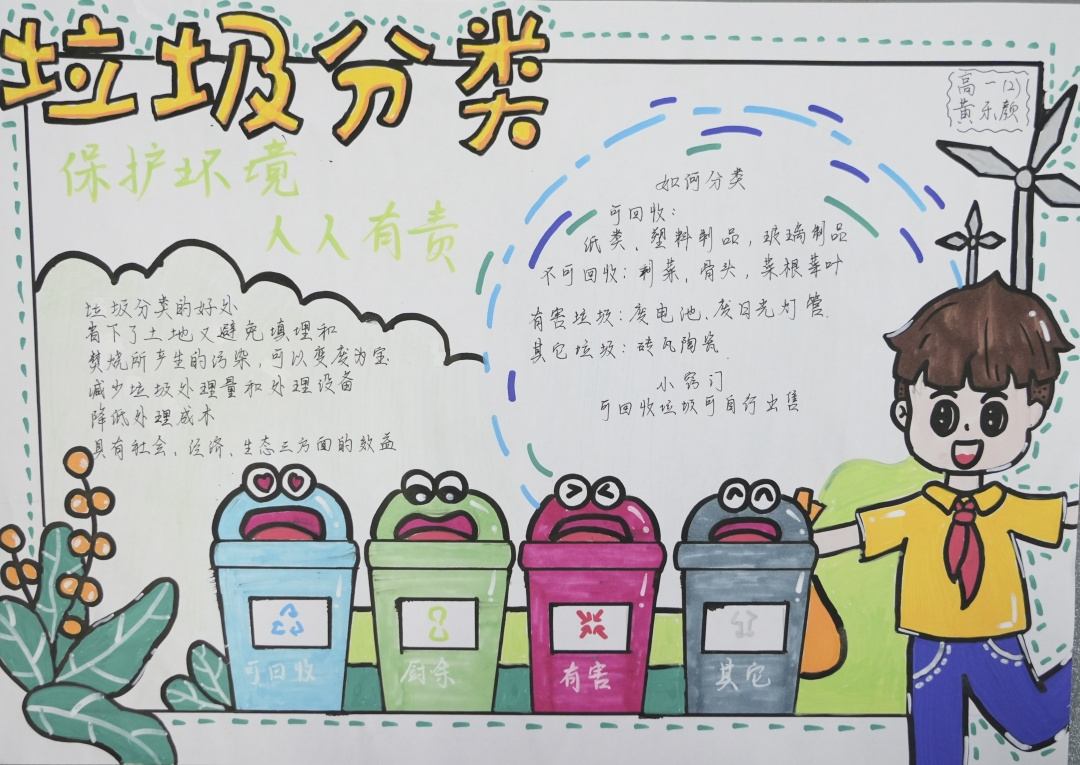 垃圾分类
高一(2)
黄乐颜
保护环境
人人有责
垃圾分类的好处
省下了土地又避免填埋和
焚烧所产生的污染，可以变废为宝
减少垃圾处理量和处理设备
降低处理成本
具有社会、经济、生态三方面的效益
如何分类
可回收：
纸类、塑料制品，玻璃制品
不可回收：剩菜、骨头、菜根菜叶
有害垃圾：废电池、废日光灯管.
其它垃圾：砖瓦陶瓷.
小窍门
可回收垃圾可自行出售
可回收
厨余
有害
其它